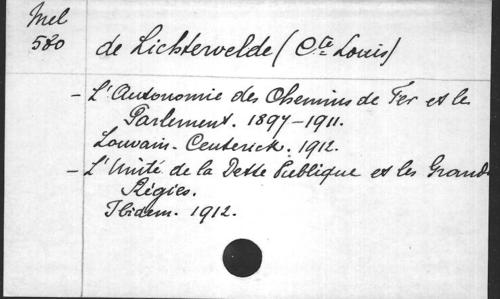 Mel
580
de Lichtervelde (Cte Louis)
- L'Autonomie des Chemins de Fer et le
Parlement. 1897-1911.
Louvain - Ceuterick. 1912.
- L'Unité de la Dette Publique et les Grandes
Régies.
Ibidem. 1912.